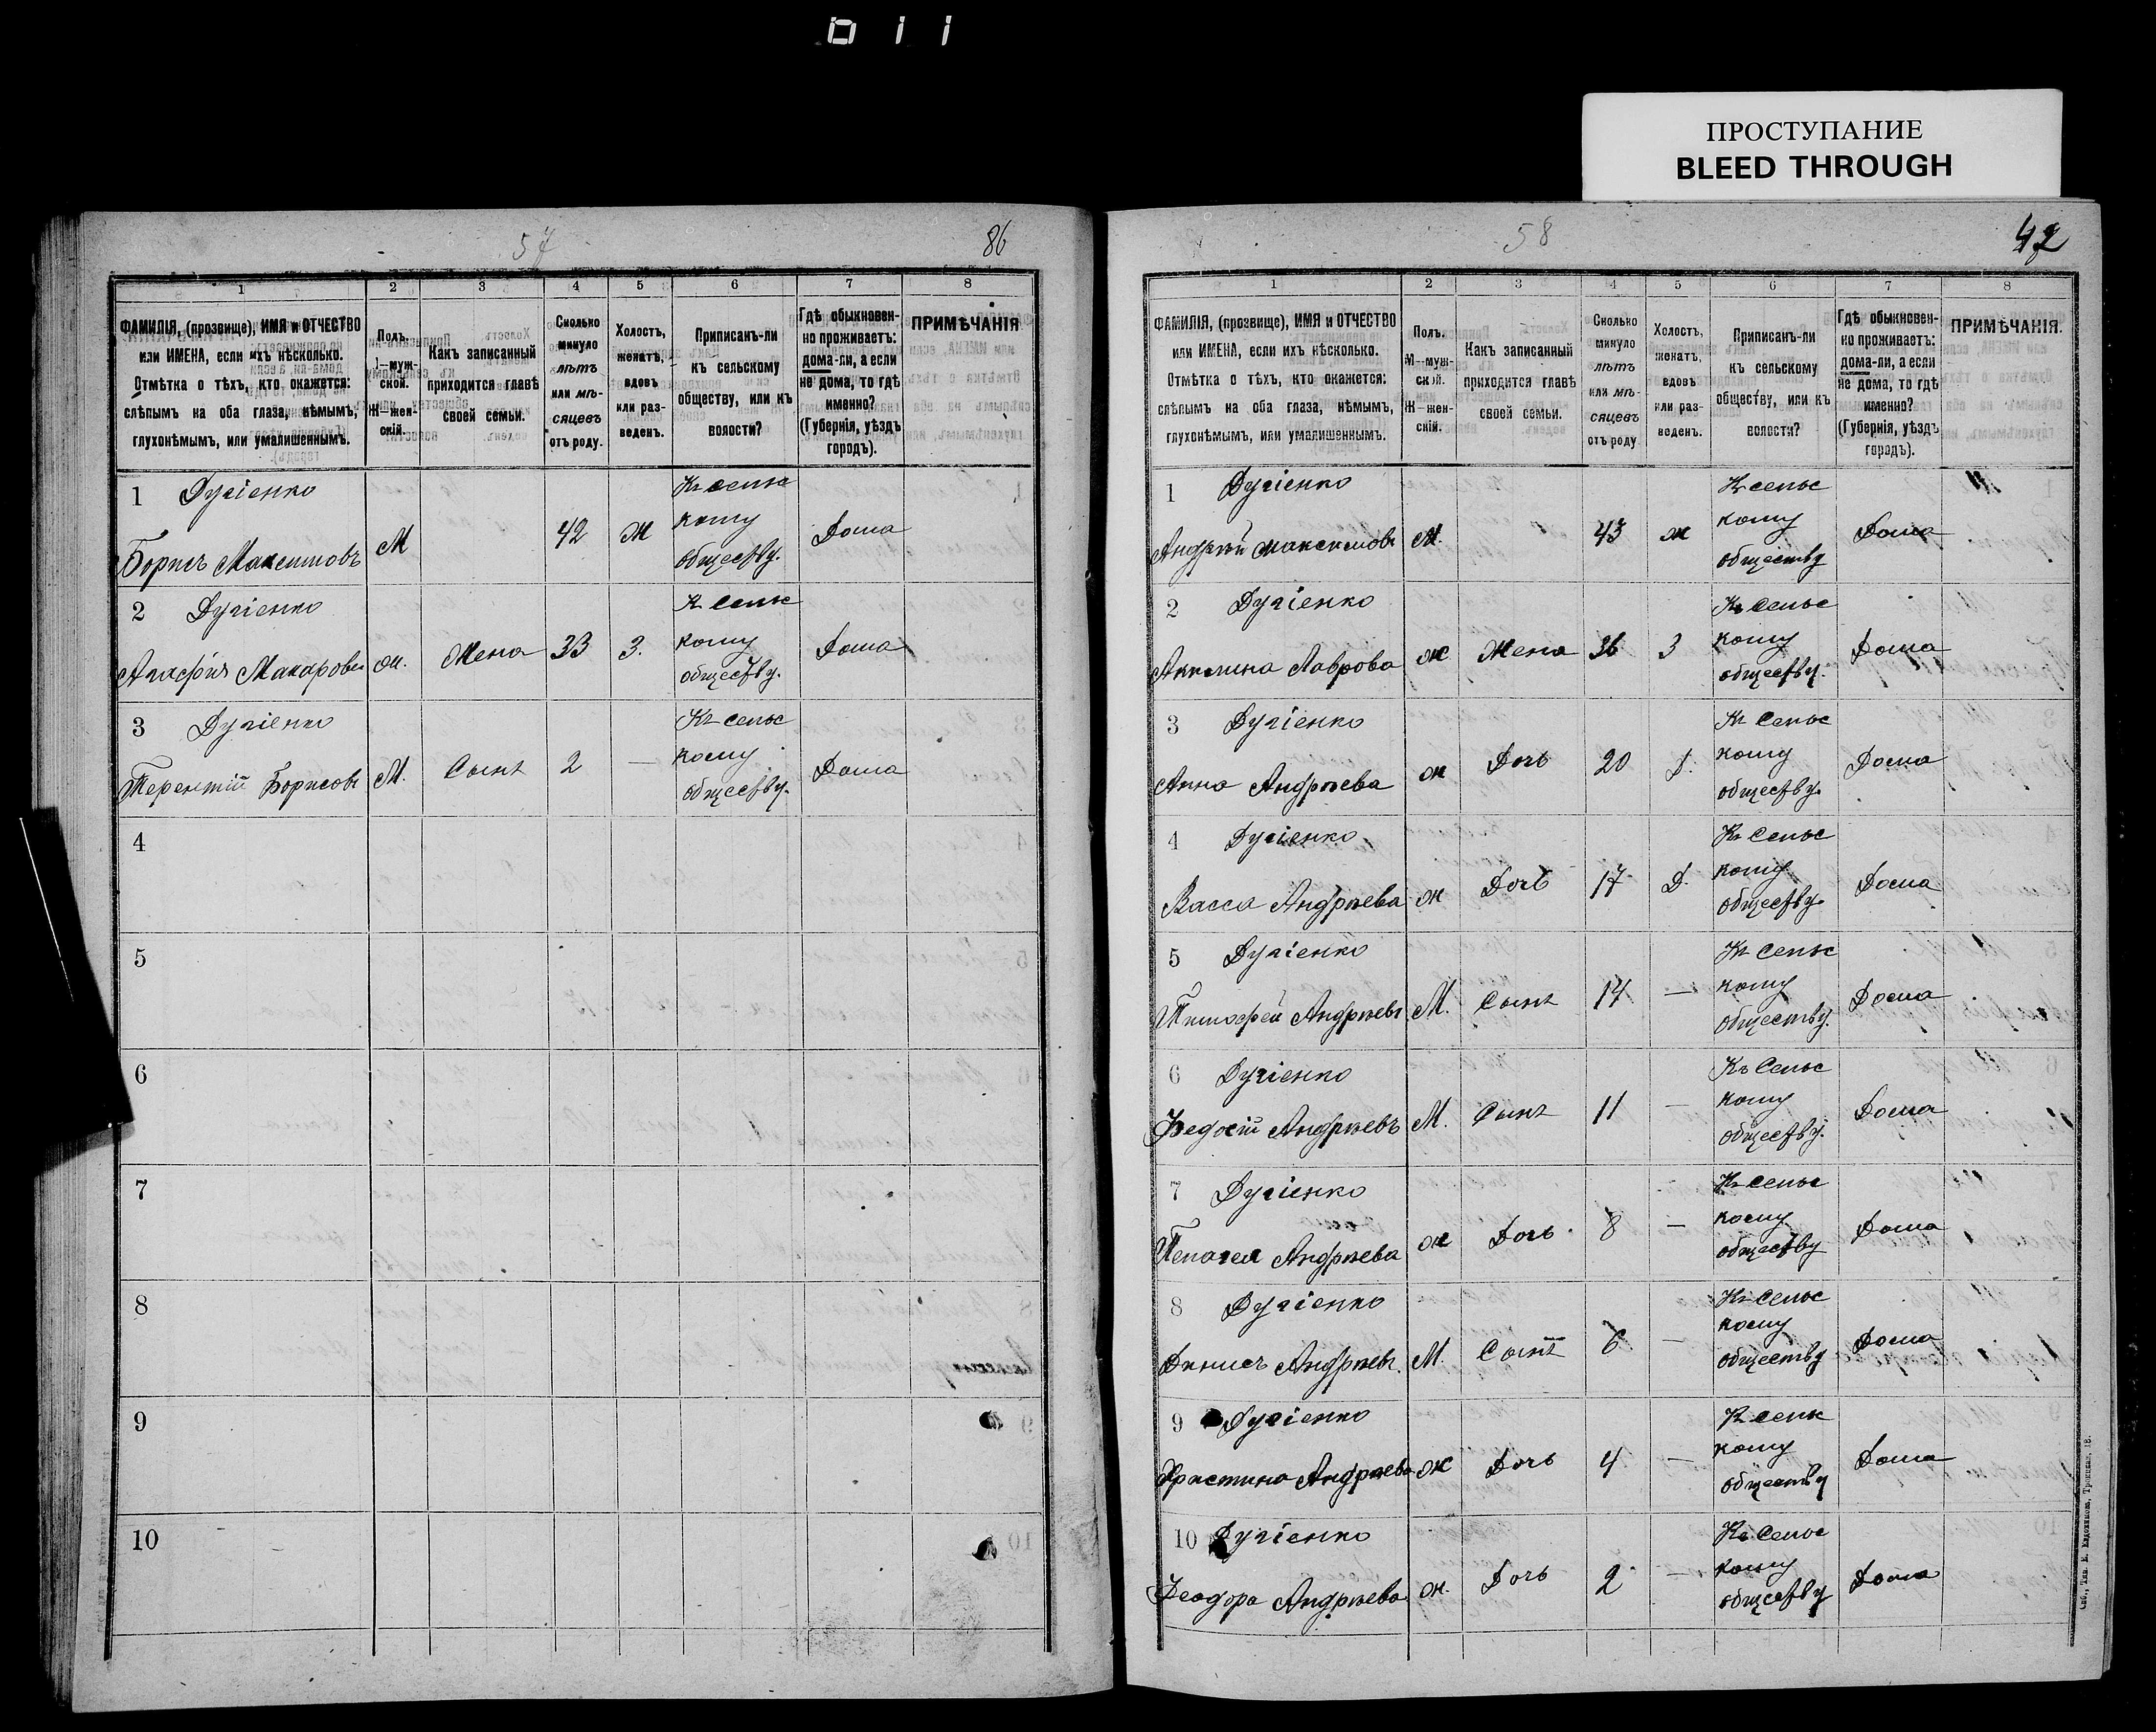 011
ПРОСТУПАНИЕ
BLEED THROUGH
57
86
1 2 3 4 5 6 7 8
ФАМИЛІЯ, (прозвище), ИМЯ и ОТЧЕСТВО
или ИМЕНА, если ихъ нѣсколько.
Отмѣтка о тѣхъ, кто окажется:
слѣпымъ на оба глаза, нѣмымъ,
глухонѣмымъ, или умалишеннымъ.
Полъ.
М—муж-
ской.
Ж—жен-
скій.
Какъ записанный
приходится главѣ
своей семьи.
Сколько
минуло
лѣтъ
или мѣ-
сяцевъ
отъ роду.
Холостъ,
женатъ,
вдовъ
или раз-
веденъ.
Приписанъ-ли
къ сельскому
обществу, или къ
волости?
Гдѣ обыкновен-
но проживаетъ:
дома-ли, а если
не дома, то гдѣ
именно?
(Губернія, уѣздъ
городъ).
ПРИМѢЧАНІЯ
1 Дугіенко
Борисъ Максимовъ М 42 ж Къ сельскому обществу. Дома
2 Дугіенко
Агафія Макарова ж. Жена 33 З. Къ сельскому обществу. Дома
3 Дугіенко
Терентій Борисовъ М. Сынъ 2 — Къ сельскому обществу. Дома
4
5
6
7
8
9
10
58
42
1 2 3 4 5 6 7 8
ФАМИЛІЯ, (прозвище), ИМЯ и ОТЧЕСТВО
или ИМЕНА, если ихъ нѣсколько.
Отмѣтка о тѣхъ, кто окажется:
слѣпымъ на оба глаза, нѣмымъ,
глухонѣмымъ, или умалишеннымъ.
Полъ.
М—муж-
ской.
Ж—жен-
скій.
Какъ записанный
приходится главѣ
своей семьи.
Сколько
минуло
лѣтъ
или мѣ-
сяцевъ
отъ роду
Холостъ,
женатъ,
вдовъ
или раз-
веденъ.
Приписанъ-ли
къ сельскому
обществу, или къ
волости?
Гдѣ обыкновен-
но проживаетъ:
дома-ли, а если
не дома, то гдѣ
именно?
(Губернія, уѣздъ
городъ).
ПРИМѢЧАНІЯ.
1 Дугіенко
Андрѣй Максимовъ М. 43 ж Къ сельскому обществу Дома
2 Дугіенко
Акилина Лаврова ж Жена 36 З Къ сельскому обществу. Дома
3 Дугіенко
Анна Андрѣева ж Дочь 20 Д. Къ сельскому обществу. Дома
4 Дугіенко
Васса Андрѣева ж Дочь 17 Д. Къ сельскому обществу. Дома
5 Дугіенко
Тимофей Андрѣевъ М. Сынъ 14 — Къ сельскому обществу. Дома
6 Дугіенко
Федосій Андрѣевъ М. Сынъ 11 — Къ сельскому обществу. Дома
7 Дугіенко
Пелагея Андрѣева ж Дочь 8 — Къ сельскому обществу Дома
8 Дугіенко
Денисъ Андрѣевъ М. Сынъ 6 — Къ сельскому обществу Дома
9 Дугіенко
Христина Андрѣева ж Дочь 4 — Къ сельскому обществу Дома
10 Дугіенко
Феодора Андрѣева ж. Дочь 2 — Къ сельскому обществу Дома